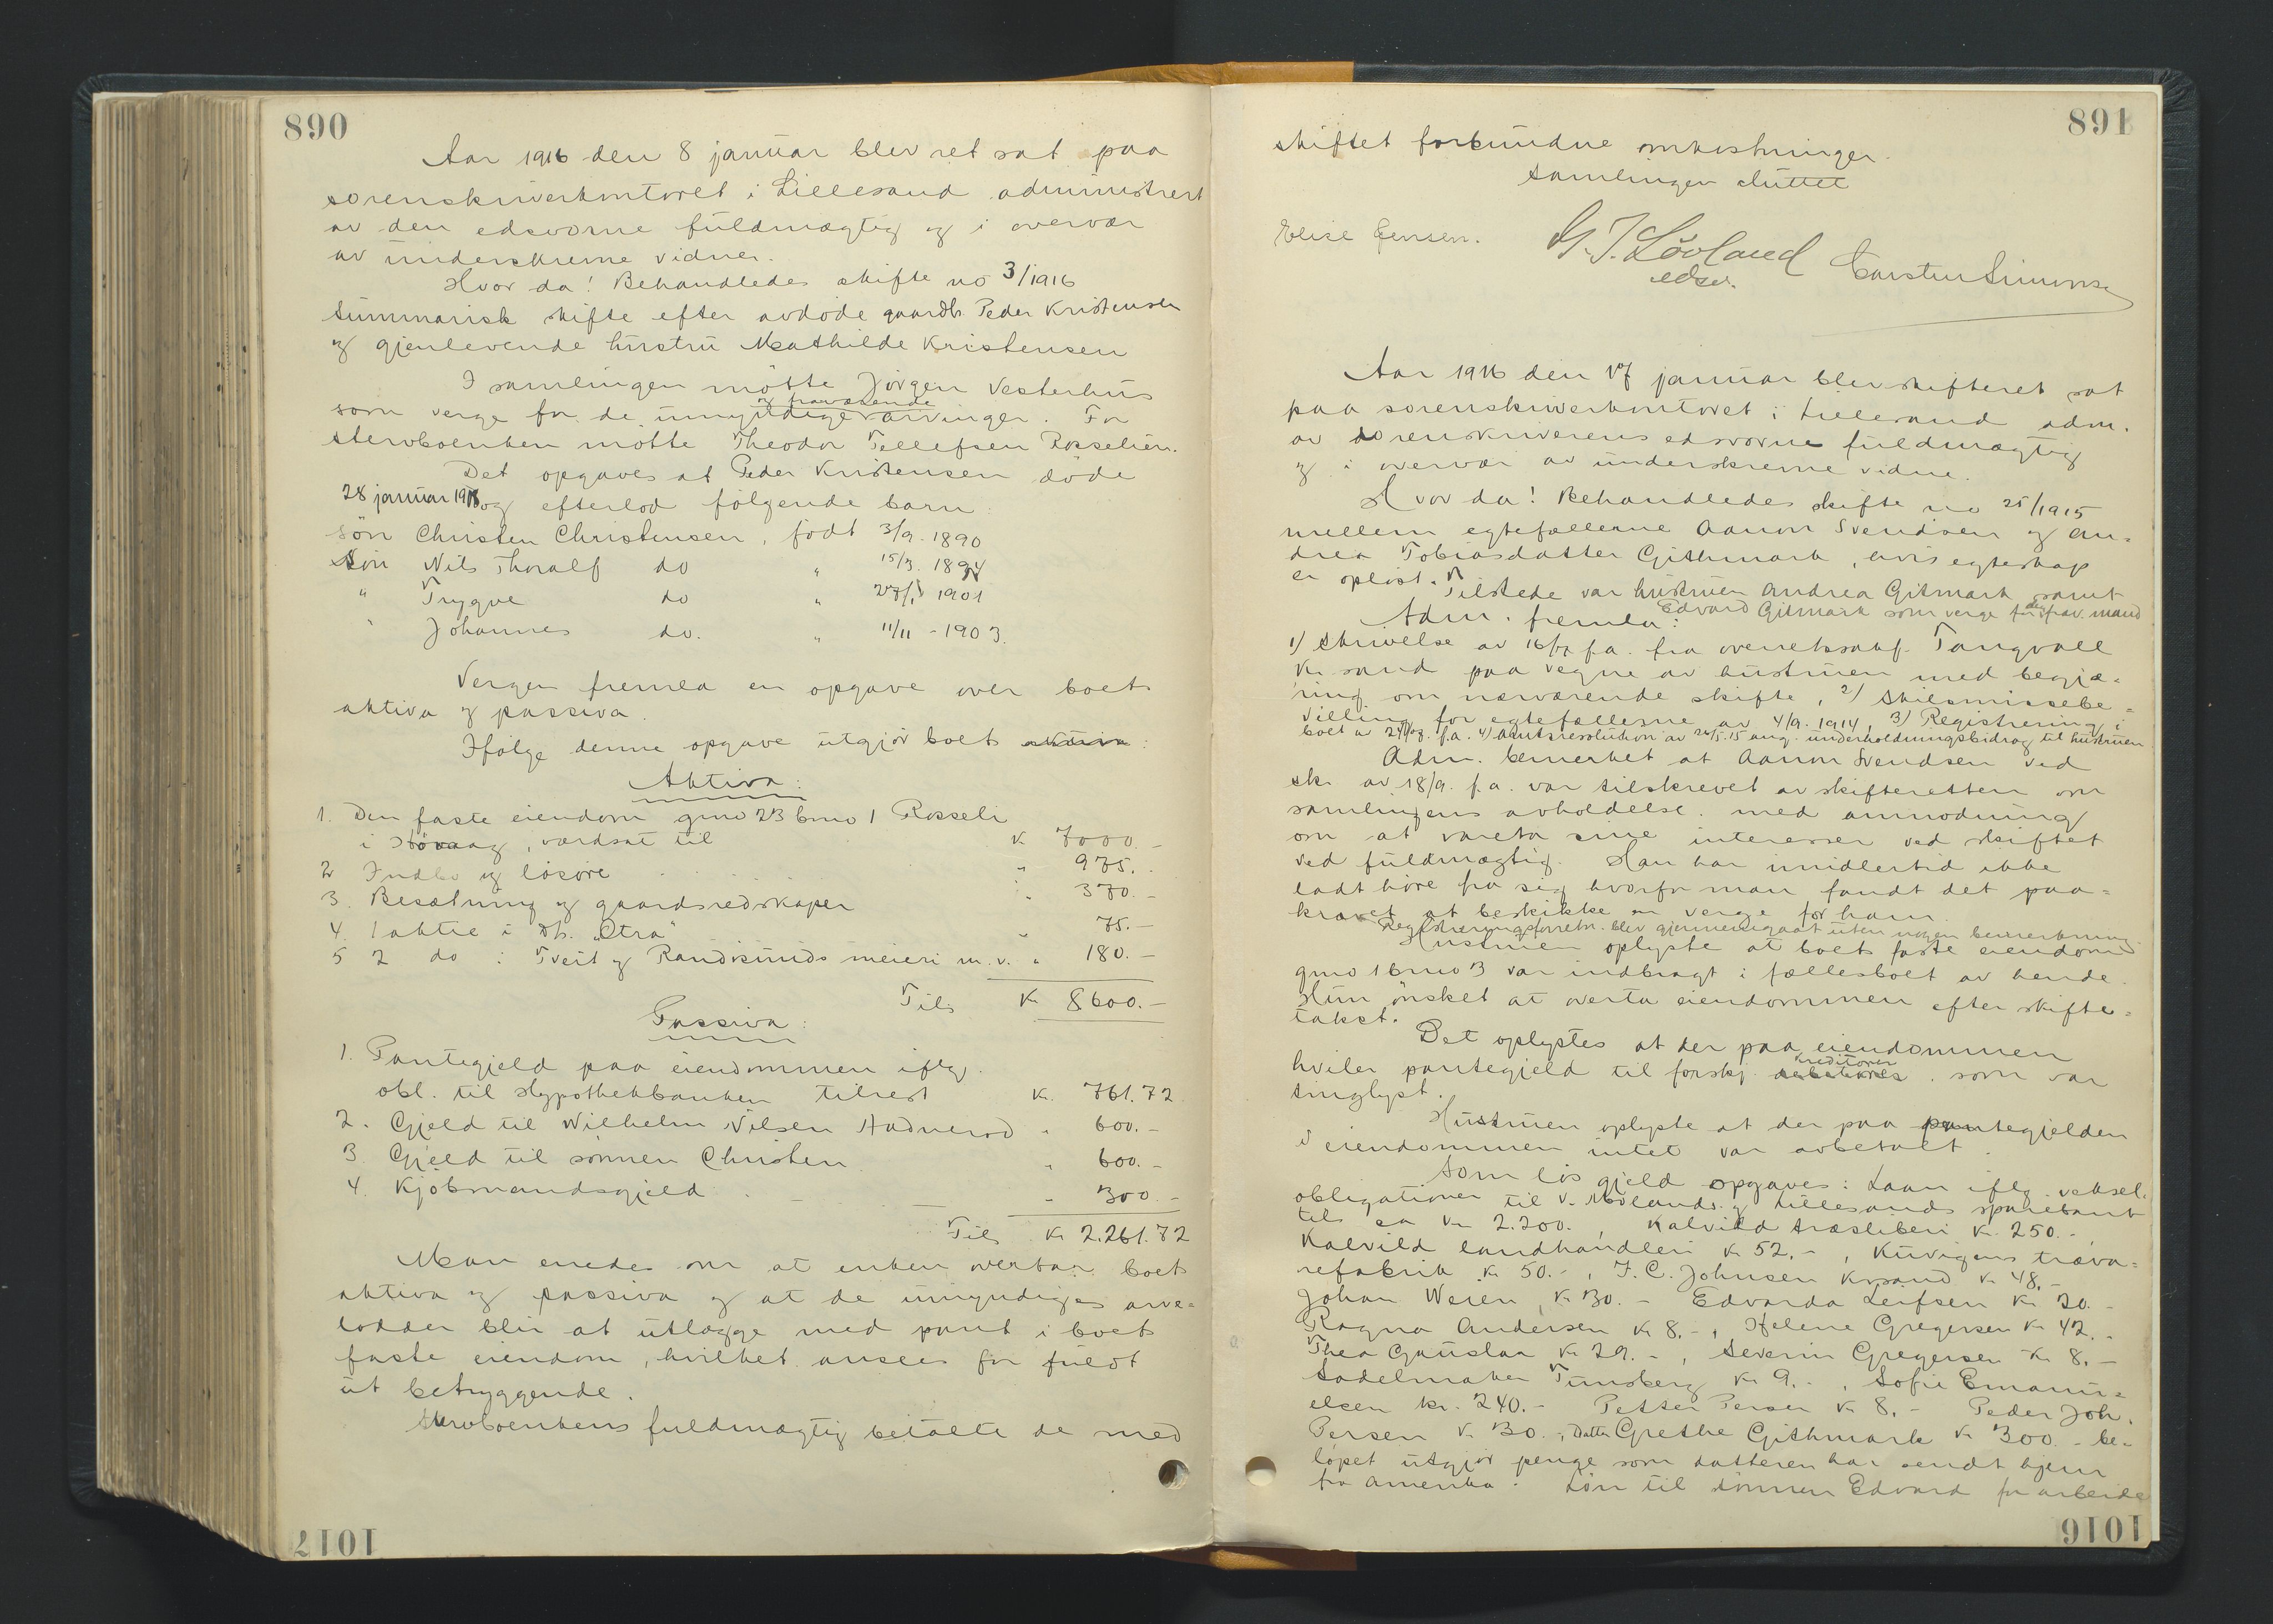 890
Aar 1916 den 8 januar blev ret sat paa
sorenskriverkontoret i Lillesand administrert
av den edsvorne fuldmægtig og i overvær
av underskrevne vidner.
Hvor da! Behandledes skifte no 3/1916
summarisk skifte efter avdöde gaardbr. Peder Kristensen
og gjenlevende hustru Mathilde Kristensen
I samlingen mötte Jörgen Vesterhus
og fraværende
som verge for de umyndige arvinger. For
stervboenken mötte Theodor Tellefsen Rosselien.
Det opgaves at Peder Kristensen döde
28 januar og efterlod fölgende barn
sön Christen Christensen, födt 3/9. 1890
Sön Nils Thoralf do " 15/3. 1894
" Trygve do " 1901
" Johannes do. " 11/11 - 1903.
Vergen fremla en opgave over boets
aktiva og passiva.
Ifölge denne opgave utgjör boets aktiva:
Aktiva:
1. Den faste eiendom gno 23 bno 1 Rosseli
i Hövaag, værdsat til K 7000.-
2 Indbo og lösöre " 975.-
3. Besætning og gaardsredskaper " 370.-
4. 1 aktie i Ds. "Otra" " 75.-
5 2 do i Tveit og Randesunds meieri m.v. " 180.-
Tils Kr 8600.-
Passiva:
1. Pantegjeld paa eiendommen iflg.
obl. til Hypothekbanken tilrest Kr. 761.72
2. Gjeld til Wilhelm Nilsen Hadnerod " 600.-
3. Gjeld til sönnen Christen " 600.-
4. Kjöbmandsgjeld " 300.-
Tils Kr 2.261.72
Man enedes om at enken overtar boets
aktiva og passiva og at de umyndiges arve-
lodder blir at utlægge med pant i boets
faste eiendom, hvilket ansees for fuldt
ut betryggende.
Stervboenkens fuldmægtig betalte de med
1017
891
skiftet forbundne omkostninger.
Samlingen sluttet
Elise Jensen. G. T. Lövland Carsten Simonsen
edsv.
Aar 1916 den 17 januar blev skifteret sat
paa sorenskriverkontoret i Lillesand adm.
av sorenskriverens edsvorne fuldmægtig
og i overvær av underskrevne vidne.
Hvor da! Behandledes skifte no 25/1915
mellem egtefællerne Aanon Svendsen og An-
drea Tobiasdatter Githmark, hvis egteskap
er oplöst. Tilstede var hustruen Andrea Gitmark samt
Edvard Gitmark som verge for den frav. mand
Adm. fremla:
1) Skrivelse av f.a. fra overretssakf. Tangvall
Kr.sand paa vegne av hustruen med begjæ-
ring om nærværende skifte, 2) Skilsmissebe-
villing for egtefællerne av 4/9. 1914, 3) Registrering i
boet av f.a. 4) Amtsresolution av 26/5.15 ang. underholdningsbidrag til hustruen
Adm. bemerket at Aanon Svendsen ved
skr. av 18/9. f.a. var tilskrevet av skifteretten om
samlingens avholdelse med anmodning
om at vareta sine interesser ved skiftet
ved fuldmægtig. Han har imidlertid ikke
ladt höre fra sig hvorfor man fandt det paa-
krævet at beskikke en verge for ham.
Registreringsforretn. blev gjennemgaat uten nogen bemerkning.
Hustruen oplyste at boets faste eiendom
gno 1 bno 3 var indbragt i fællesboet av hende.
Hun önsket at overta eiendommen efter skifte-
takst.
Det oplystes at der paa eiendommen
kreditorer
hviler pantegjeld til forskj. som var
tinglyst.
Hustruen oplyste at der paa pantegjelden
i eiendommen intet var avbetalt.
Som lös gjeld opgaves: Laan iflg. veksel-
obligationer til V. Molands og Lillesands sparebank
tils ca Kr 2.200., Kalvild træsliberi Kr. 250.-
Kalvild landhandleri Kr 52.-, Kuvigens træva-
refabrik Kr 50.-, J.C. Johnsen Krsand Kr 48.-
Johan Weien, Kr 30.- Edvarda Leifsen Kr 20.-
Ragna Andersen Kr 8.-, Helene Gregersen Kr 42.-
Thea Gauslaa Kr 29.-, Severin Gregersen Kr 8.-
Sadelmaker Tunsberg Kr 9.-, Sofie Emanu-
elsen kr. 240.- Petter Persen Kr 8.- Peder Joh.
Persen Kr 30., Datter Grethe Githmark Kr 300.- be-
löpet utgjör penge som datteren har sendt hjem
fra Amerika. Lön til sönnen Edvard for arbeide
1016